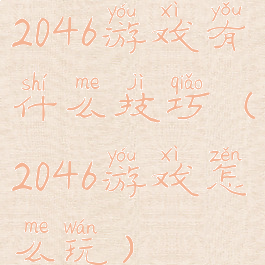 yóu xì yǒu
2046游戏有
shí me jì qiǎo
什么技巧（
yóu xì zěn
2046游戏怎
me wán
么玩）